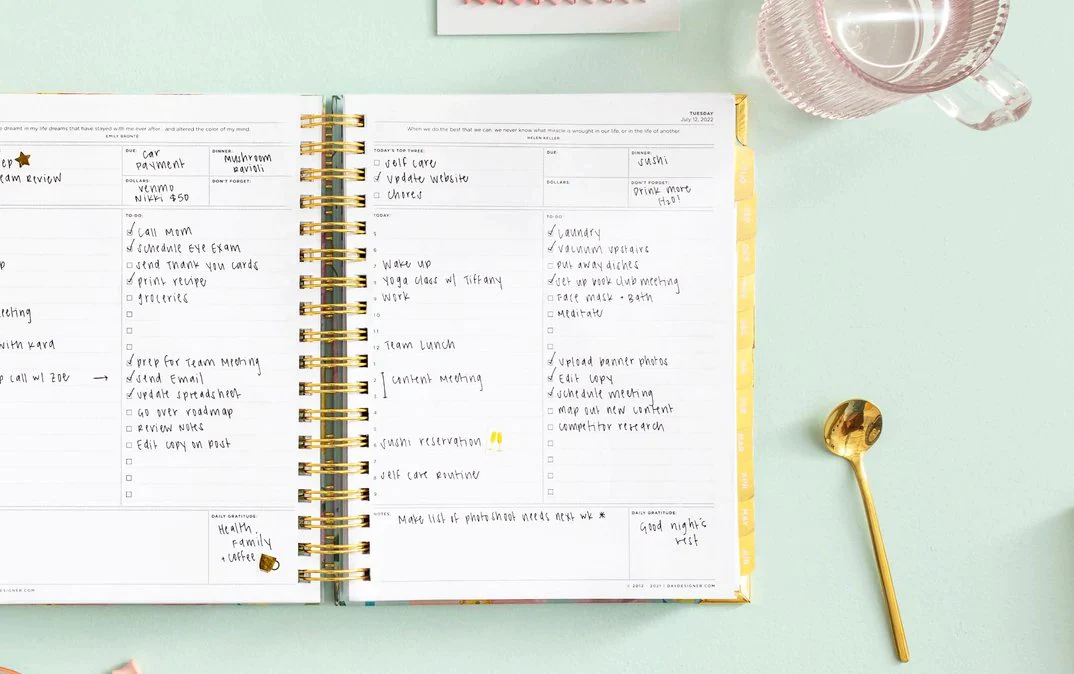 dreams in my life dreams that have stayed with me ever after... and altered the color of my mind.
EMILY BRONTË
DUE:
Car
payment
DINNER:
Mushroom
Ravioli
eam Review
DOLLARS:
venmo
Nikki $50
DON'T FORGET:
TO-DO:
Call Mom
Schedule Eye Exam
Send Thank You Cards
print recipe
groceries
eeting
with Kara
prep for Team Meeting
p call w/ Zoe → Send Email
update spreadsheet
Go over roadmap
Review Notes
Edit copy on post
DAILY GRATITUDE:
Health,
Family
+ coffee
TUESDAY
July 12, 2022
When we do the best that we can, we never know what miracle is wrought in our life, or in the life of another.
HELEN KELLER
TODAY'S TOP THREE:
Self care
Update Website
Chores
DUE:
DINNER:
Sushi
DOLLARS:
DON'T FORGET:
Drink more
H2O!
TODAY:
5
6
7 Wake up
8 Yoga Class w/ Tiffany
9 Work
10
11
12 Team Lunch
1
2 Content Meeting
3
4
5
6 Sushi reservation
7
8 Self care Routine
9
TO-DO:
Laundry
Vacuum upstairs
put away dishes
Set up book club meeting
Face mask + Bath
Meditate
Upload banner photos
Edit Copy
Schedule meeting
map out new content
competitor research
NOTES:
Make list of photoshoot needs next wk *
DAILY GRATITUDE:
Good night's
rest
© 2012 - 2021 | DAYDESIGNER.COM